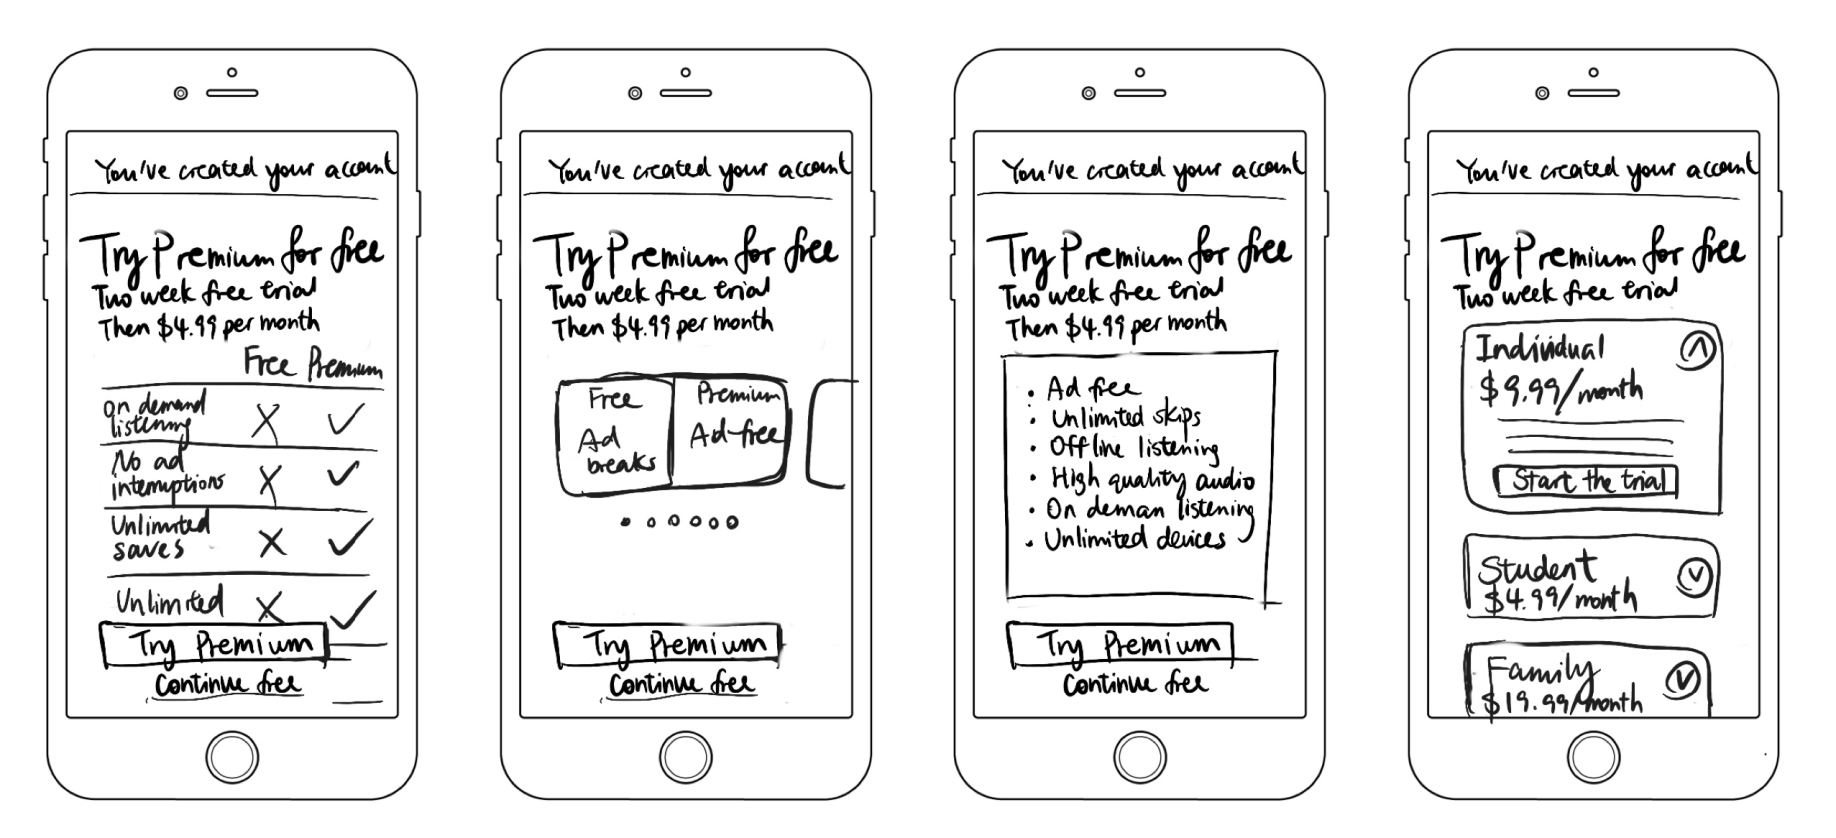 You've created your account
Try Premium for free
Two week free trial
Then $4.99 per month
Free Premium
On demand
listening
No ad
interruptions
Unlimited
saves
Unlimited
Try Premium
Continue free
You've created your account
Try Premium for free
Two week free trial
Then $4.99 per month
Free
Ad
breaks
Premium
Ad-free
Try Premium
Continue free
You've created your account
Try Premium for free
Two week free trial
Then $4.99 per month
• Ad free
• Unlimited skips
• Offline listening
• High quality audio
• On deman listening
• Unlimited devices
Try Premium
Continue free
You've created your account
Try Premium for free
Two week free trial
Individual
$9.99/month
Start the trial
Student
$4.99/month
Family
$19.99/month